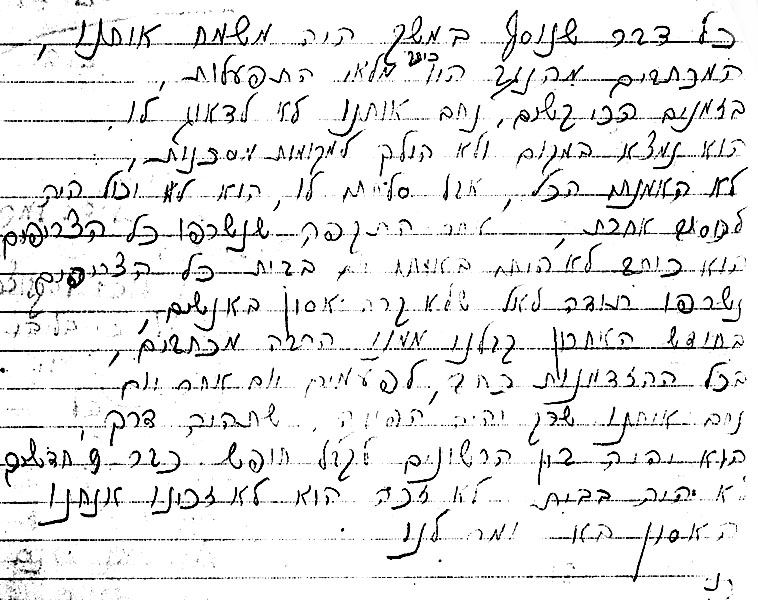 כל דבר שנוסף במשק היה משמח אותנו,
המכתבים מהנגב היו מלאי התפעלות,
בזמנים הכי קשים, נחם אותנו לא לדאוג לו.
הוא נמצא במקום ולא הולק למקומות מסכנות,
לא האמנתי הכל, אבל סלחתי לו, הוא לא יכול היה
אחרת, אחר התקפה שנשרפו כל הצריפים
הוא כותב לא הייתם בבית כל הצריפים
נשרפו תודה לאל שלא קרה אסון באנשים,
בחודש האחרון קבלנו ממנו הרבה מכתבים,
בכל ההזדמנות כתב, לפעמים יום אחר יום
נחם אותנו שרק יהיה שתהיה דרך,
הוא יהיה בין הרשונים לקבל חופש כבר 9 חדשים
לא יהיה בבית לא זכה הוא לא זכינו אנחנו
האסון בא ומר לנו